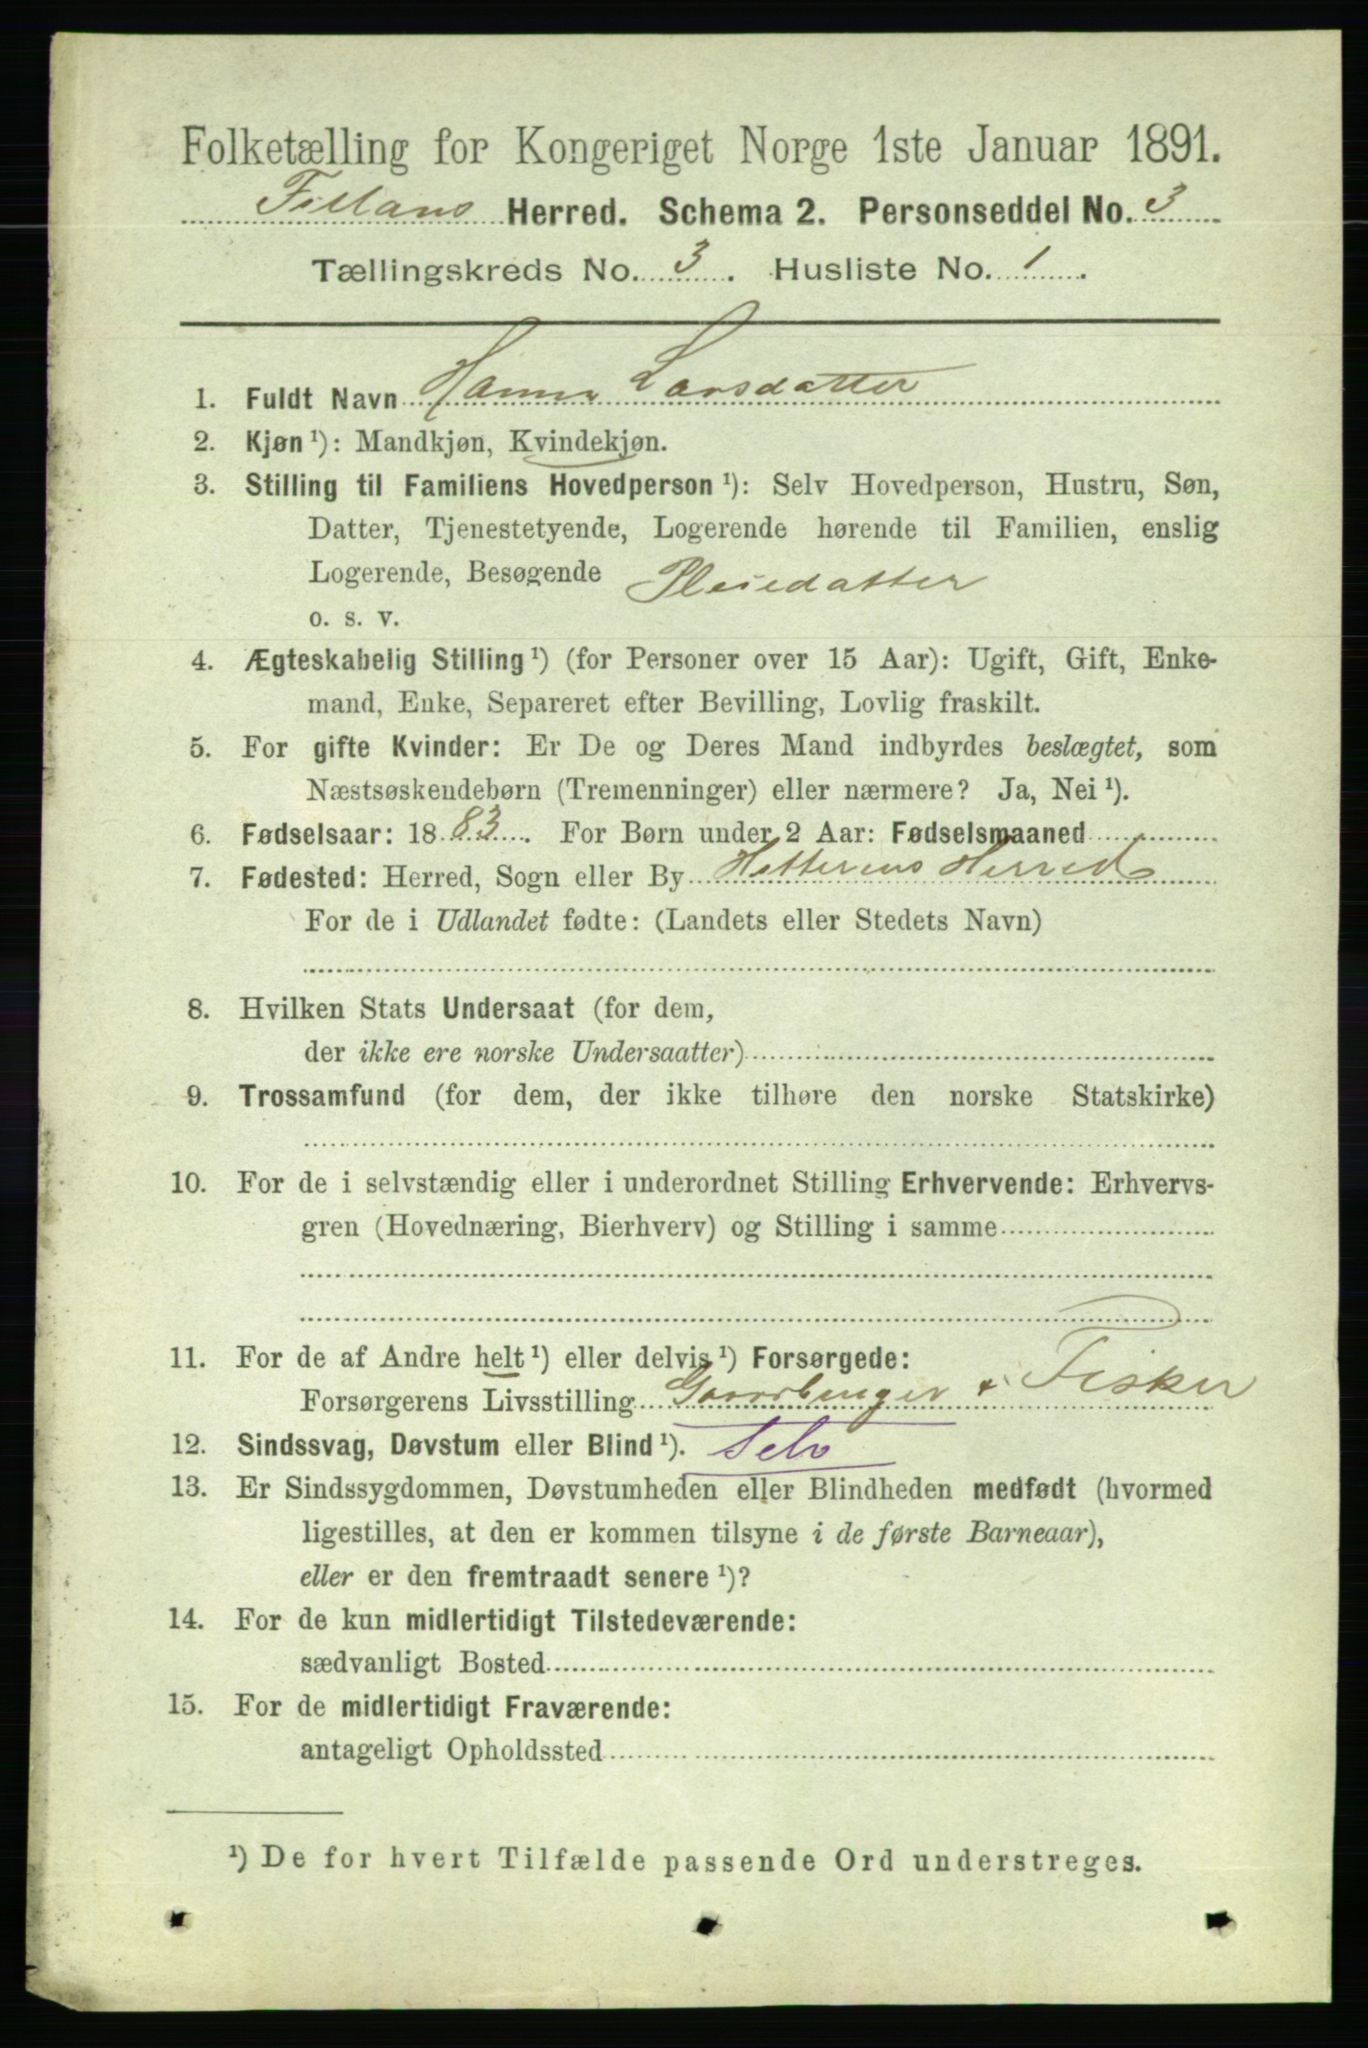 Folketælling for Kongeriget Norge 1ste Januar 1891.
Fillans Herred. Schema 2. Personseddel No. 3
Tællingskreds No. 3. Husliste No. 1.
1. Fuldt Navn Hanna Larsdatter
2. Kjøn ¹): Mandkjøn, Kvindekjøn.
3. Stilling til Familiens Hovedperson ¹): Selv Hovedperson, Hustru, Søn,
Datter, Tjenestetyende, Logerende hørende til Familien, enslig
Logerende, Besøgende Pleiedatter
o. s. v.
4. Ægteskabelig Stilling ¹) (for Personer over 15 Aar): Ugift, Gift, Enke-
mand, Enke, Separeret efter Bevilling, Lovlig fraskilt.
5. For gifte Kvinder: Er De og Deres Mand indbyrdes beslægtet, som
Næstsøskendebørn (Tremenninger) eller nærmere? Ja, Nei ¹).
6. Fødselsaar: 1883. For Børn under 2 Aar: Fødselsmaaned
7. Fødested: Herred, Sogn eller By Hitterens Herred
For de i Udlandet fødte: (Landets eller Stedets Navn)
8. Hvilken Stats Undersaat (for dem,
der ikke ere norske Undersaatter)
9. Trossamfund (for dem, der ikke tilhøre den norske Statskirke)
10. For de i selvstændig eller i underordnet Stilling Erhvervende: Erhvervs-
gren (Hovednæring, Bierhverv) og Stilling i samme
11. For de af Andre helt ¹) eller delvis ¹) Forsørgede:
Forsørgerens Livsstilling Gaardbruger & Fisker
12. Sindssvag, Døvstum eller Blind ¹). Selv
13. Er Sindssygdommen, Døvstumheden eller Blindheden medfødt (hvormed
ligestilles, at den er kommen tilsyne i de første Barneaar),
eller er den fremtraadt senere ¹)?
14. For de kun midlertidigt Tilstedeværende:
sædvanligt Bosted
15. For de midlertidigt Fraværende:
antageligt Opholdssted
¹) De for hvert Tilfælde passende Ord understreges.